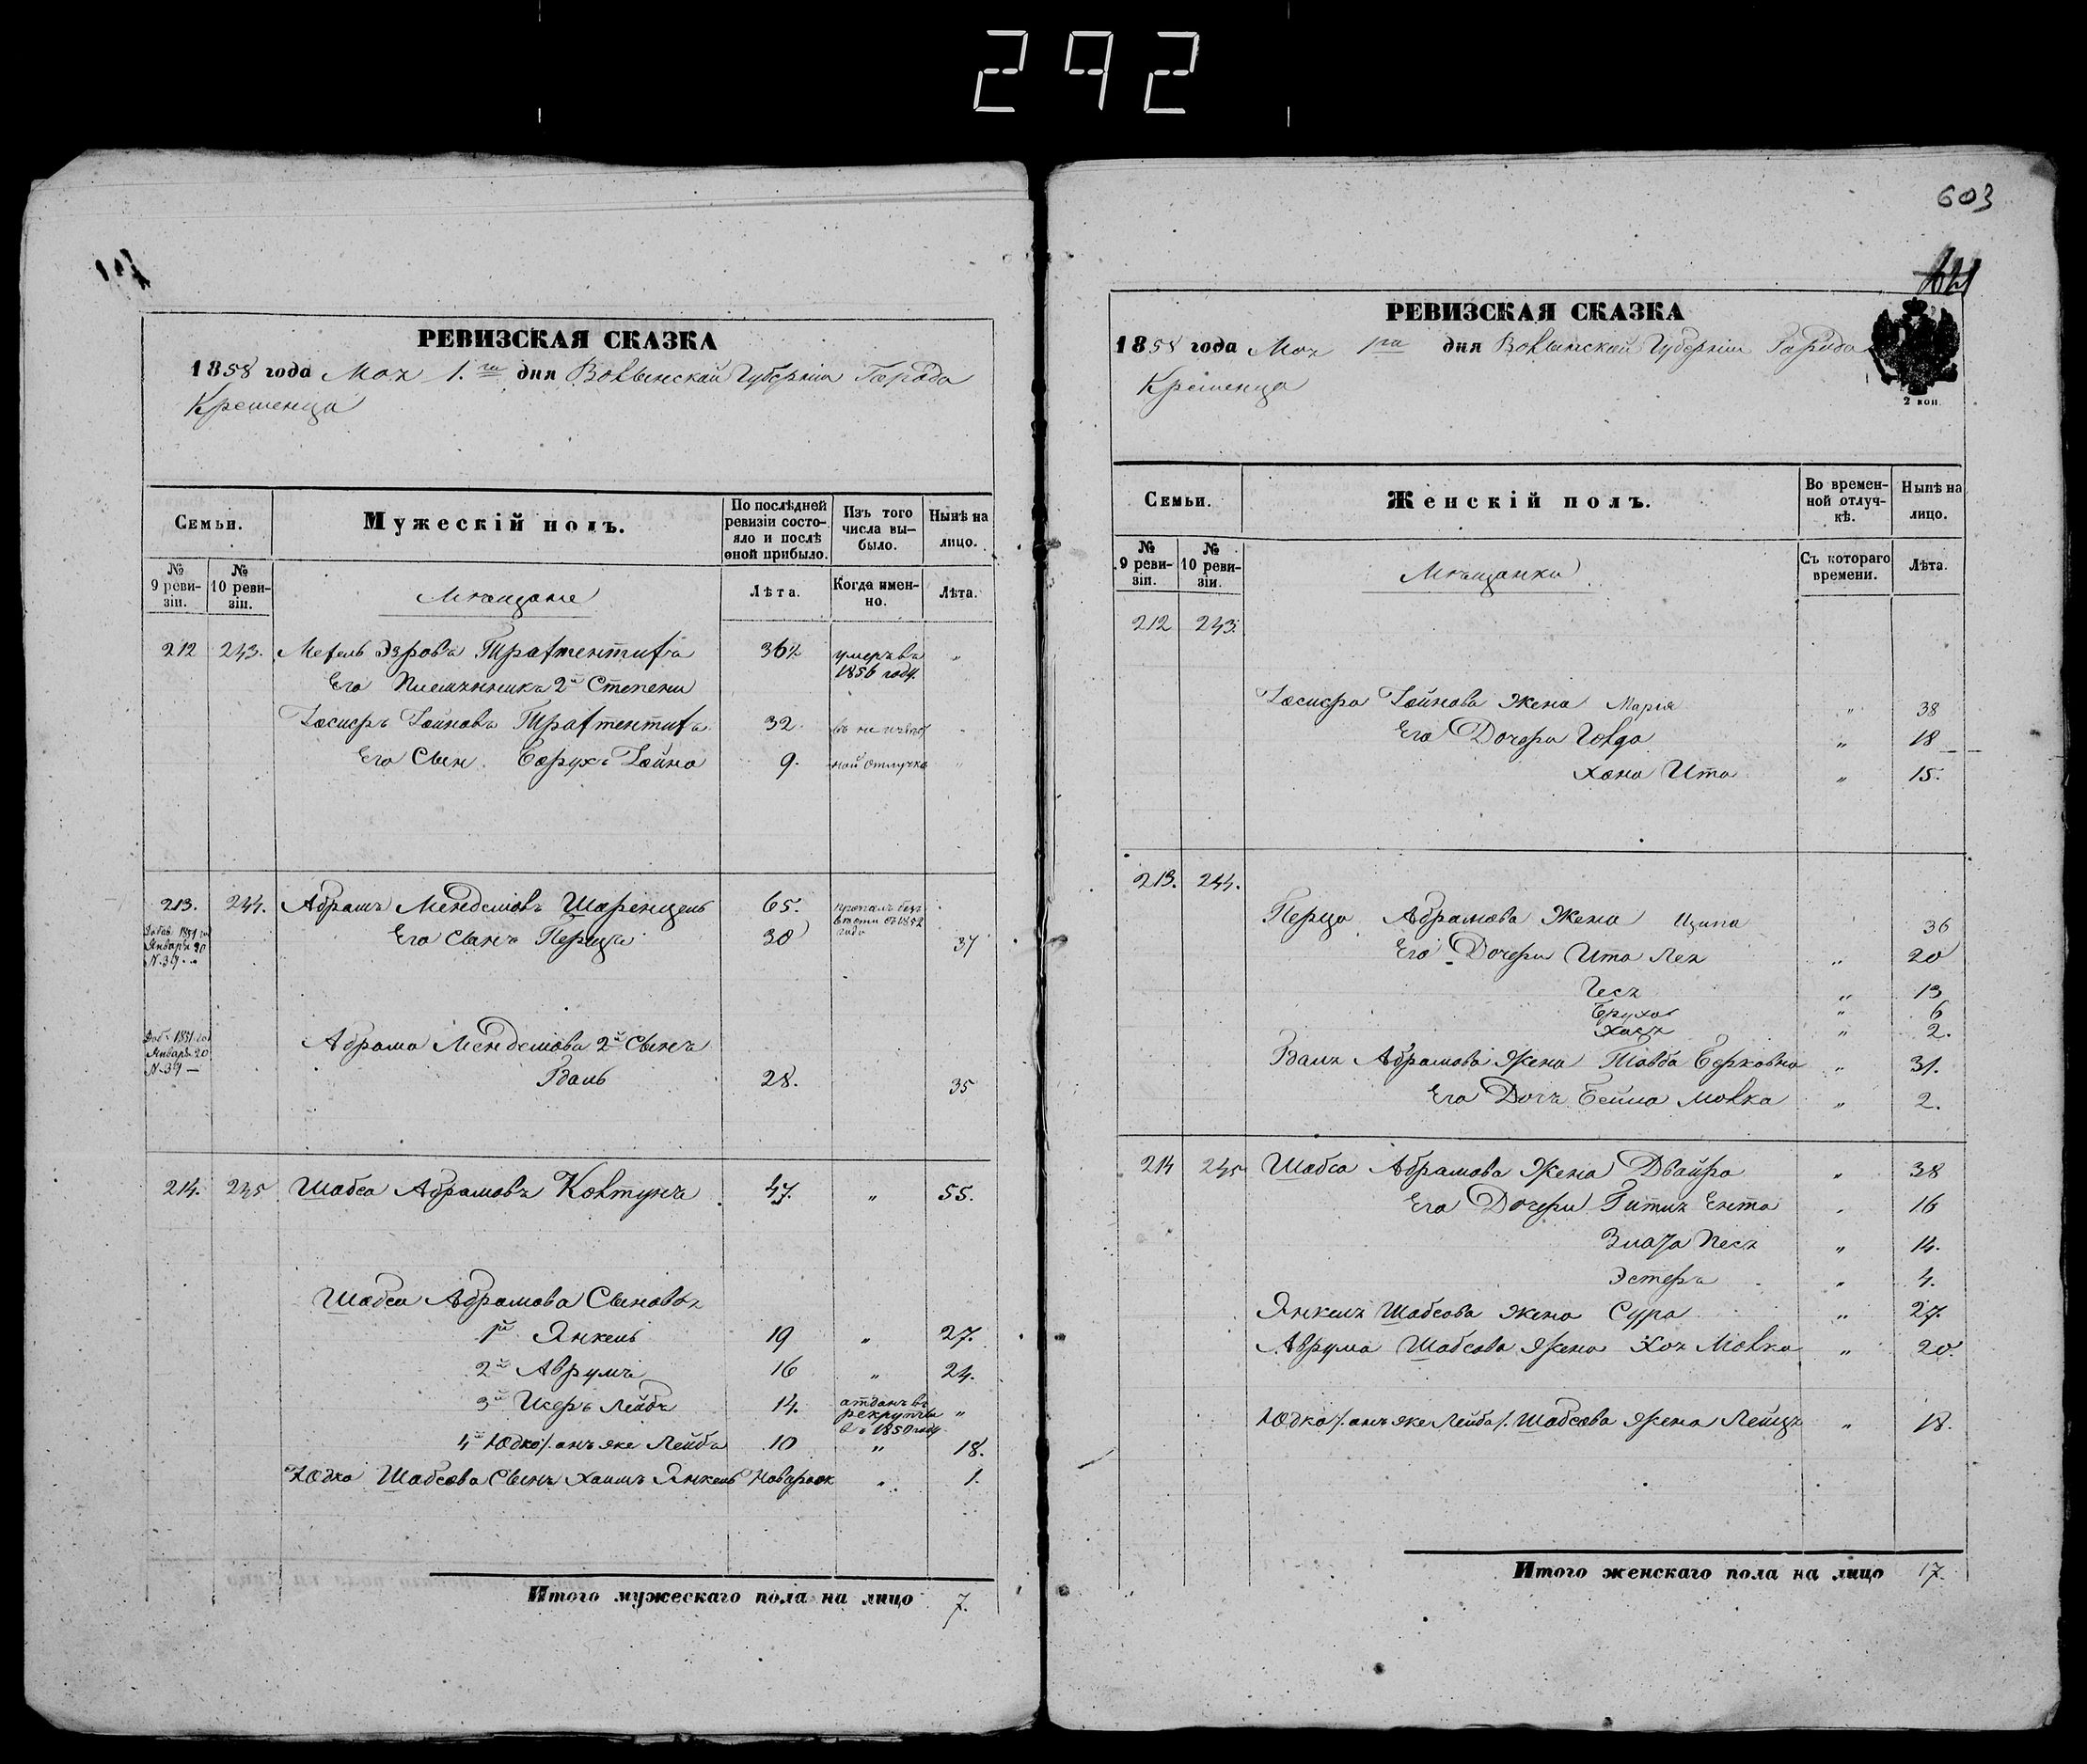 292
РЕВИЗСКАЯ СКАЗКА
1858 года Мая 1.го дня Волынской Губерніи Города
Кременца
Семьи.
Мужескій полъ.
По послѣдней ревизіи состояло и послѣ оной прибыло.
Изъ того числа выбыло.
Нынѣ на лицо.
№ 9 ревизіи.
№ 10 ревизіи.
Мѣщане
Лѣта.
Когда именно.
Лѣта.
212 243. 36½ умеръ въ 1856 году. „
Его Племянника 2й Степени
Іосифъ 32. „
Его Сын. Борухъ 9. ной отлучке „
213. 244. Абрамъ 65.
Его Сынъ Перецъ 30 37
Января 20 N. 39
Абрама 2й Сынъ
28. 35
Января 20 N. 39 —
214. 245 Шабса Абрамовъ Ковтунъ 47. „ 55.
Шабса Абрамова Сыновья
1й Янкель 19 „ 27.
2й Аврумъ 16 „ 24.
3й Лейба 14. отданъ въ рекруты въ 1850 году „
4й Юдко /. онъ же Лейба 10 „ 18.
Юдка Шабсова Сынъ Хаимъ Янкель „ 1.
Итого мужескаго пола на лицо 7.
603
РЕВИЗСКАЯ СКАЗКА
1858 года Мая 1го дня Волынской Губерніи Города
Кременца
2 коп.
Семьи.
Женскій полъ.
Во временной отлучкѣ.
Нынѣ на лицо.
№ 9 ревизіи.
№ 10 ревизіи.
Мѣщанки
Съ котораго времени.
Лѣта.
212 243.
Іосифа Жена Марія „ 38
Его Дочери Голда „ 18
Хана Ита „ 15.
213. 244.
Перца Абрамова Жена Ципа 36
Его Дочери Ита Лея „ 20
„ 13
Бруха „ 6
Хая „ 2.
Абрамова Жена Тавба Берковна „ 31.
Его Дочь Бейла Малка „ 2.
214 245 Шабса Абрамова Жена Двайра „ 38
Его Дочери Гитля Ента „ 16
Злата Песя „ 14.
Эстеръ „ 4.
Янкеля Шабсова Жена Сура „ 27.
Аврума Шабсова Жена Хая Малка „ 20.
Юдко /. онъ же Лейба /. Шабсова Жена „ 18.
Итого женскаго пола на лицо 17.